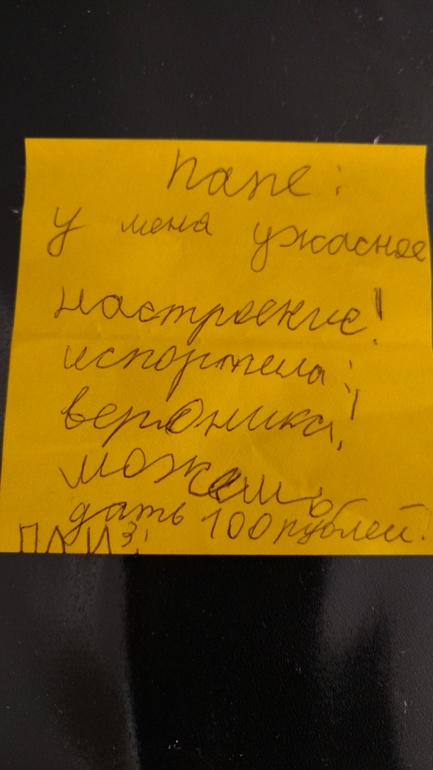 Папе:
у меня ужасное
настроение!
испортила:
вероника!
можешь
дать 100 рублей?
ПЛИЗ!